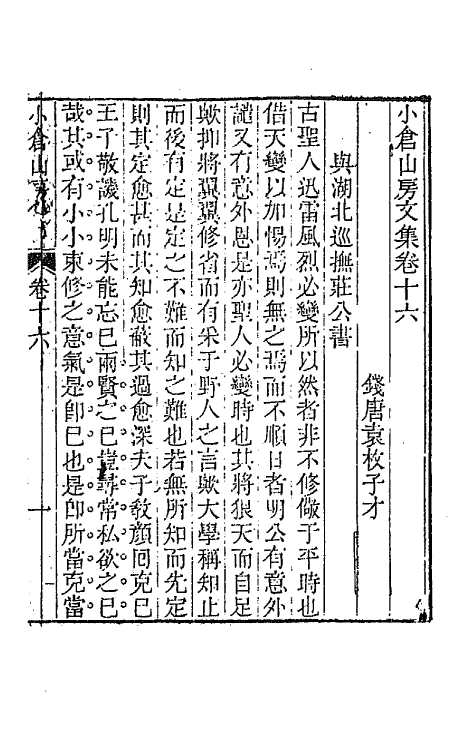 小倉山房文集卷十六
錢唐袁枚子才
與湖北巡撫莊公書
古聖人迅雷風烈必變所以然者非不修儆于平時也
借天變以加惕焉則無之焉而不順日者明公有意外
譴又有意外恩是亦聖人必變時也其將狠天而自足
歟抑將翼翼修省而有采于野人之言歟大學稱知止
而後有定是定之不難而知之難也若無所知而先定
則其定愈甚而其知愈蔽其過愈深夫子敎顏回克已
王子敬譏孔明未能忘巳兩賢之巳豈尋常私欲之巳
哉其或有小小束修之意氣是卽巳也是卽所當克當
小倉山房
卷十六
一